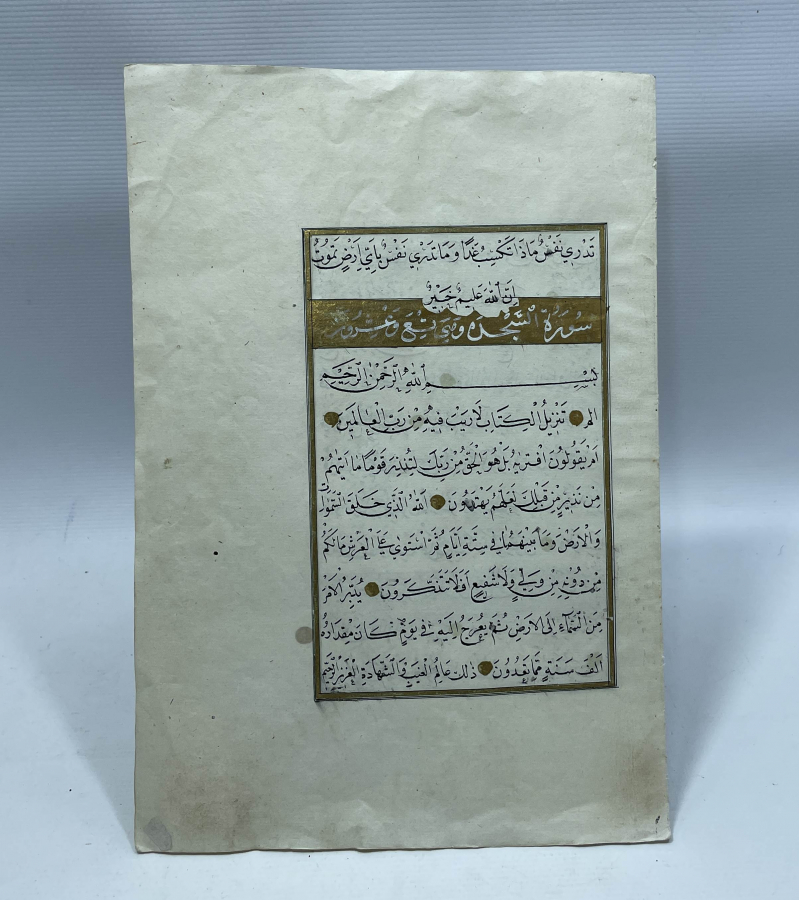 تَدْرِي نَفْسٌ مَاذَا تَكْسِبُ غَدًا وَمَا تَدْرِي نَفْسٌ بِاَيِّ اَرْضٍ تَمُوتُ
اِنَّ اللّٰهَ عَلِيمٌ خَبِيرٌ
سُورَةُ السَّجْدَةِ وَهِيَ تِسْعَ وَعِشْرُونَ
بِسْمِ اللّٰهِ الرَّحْمٰنِ الرَّحِيمِ
الم تَنْزِيلُ الْكِتَابِ لَا رَيْبَ فِيهِ مِنْ رَبِّ الْعَالَمِينَ
اَمْ يَقُولُونَ افْتَرٰيهُ بَلْ هُوَ الْحَقُّ مِنْ رَبِّكَ لِتُنْذِرَ قَوْمًا مَا اَتٰيهُمْ
مِنْ نَذِيرٍ مِنْ قَبْلِكَ لَعَلَّهُمْ يَهْتَدُونَ اَللّٰهُ الَّذِي خَلَقَ السَّمٰوَاتِ
وَالْاَرْضَ وَمَا بَيْنَهُمَا فِي سِتَّةِ اَيَّامٍ ثُمَّ اسْتَوٰى عَلَى الْعَرْشِ مَا لَكُمْ
مِنْ دُونِهِ مِنْ وَلِيٍّ وَلَا شَفِيعٍ اَفَلَا تَتَذَكَّرُونَ يُدَبِّرُ الْاَمْرَ
مِنَ السَّمَاءِ اِلَى الْاَرْضِ ثُمَّ يَعْرُجُ اِلَيْهِ فِي يَوْمٍ كَانَ مِقْدَارُهُ
اَلْفَ سَنَةٍ مِمَّا تَعُدُّونَ ذٰلِكَ عَالِمُ الْغَيْبِ وَالشَّهَادَةِ الْعَزِيزُ الرَّحِيمُ